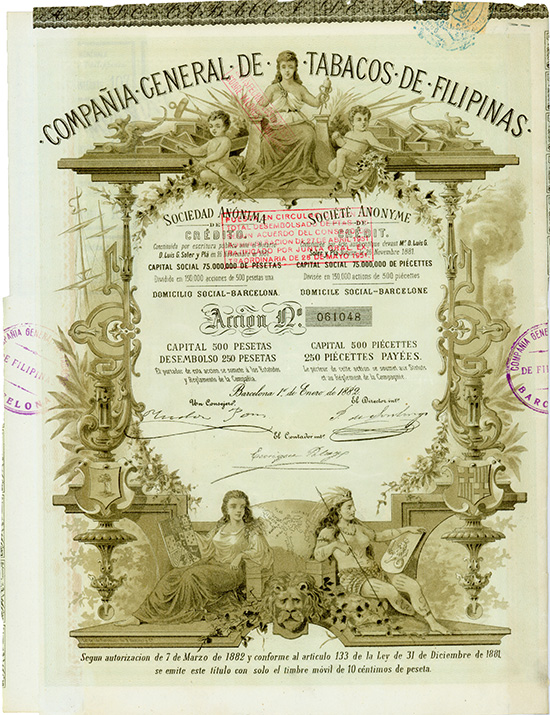 COMPAÑIA·GENERAL·DE·TABACOS·DE·FILIPINAS·
SOCIEDAD ANÓNIMA
DE
CRÉDITO.
D. Luis G. Soler y Plá en
CAPITAL SOCIAL 75.000,000 DE PESETAS
Dividido en 150,000 acciones de 500 pesetas una
DOMICILIO SOCIAL-BARCELONA
SOCIÉTÉ ANONYME
DE
CRÉDIT.
devant Mr. D. Luis G.
Novembre 1881.
CAPITAL SOCIAL 75.000,000 DE PIÉCETTES
Divisée en 150,000 actions de 500 piécettes
DOMICILE SOCIAL-BARCELONE
PUESTA EN CIRCULACION
TOTAL DESEMBOLSADO DE PTAS
ACUERDO DEL CONSEJO
DE 27 DE ABRIL 1951
POR JUNTA GRAL
EXTRAORDINARIA DE 28 DE MAYO 1951
Acción Nº 061048
CAPITAL 500 PESETAS
DESEMBOLSO 250 PESETAS
El portador de esta acción se somete á los Estatutos
y Reglamento de la Compañía.
CAPITAL 500 PIÉCETTES
250 PIÉCETTES PAYÉES.
Le porteur de cette action se soumet aux Statuts
et au Règlement de la Compagnie
Barcelona 1º de Enero de 1882
Un Consejero,
El Director intº.
El Contador intº.
COMPAÑIA GENE
DE FILIPIN
ELON
COMPAÑIA
DE FIL
BARC
Segun autorizacion de 7 de Marzo de 1882 y conforme al artículo 133 de la Ley de 31 de Diciembre de 1881,
se emite este título con solo el timbre móvil de 10 céntimos de peseta.